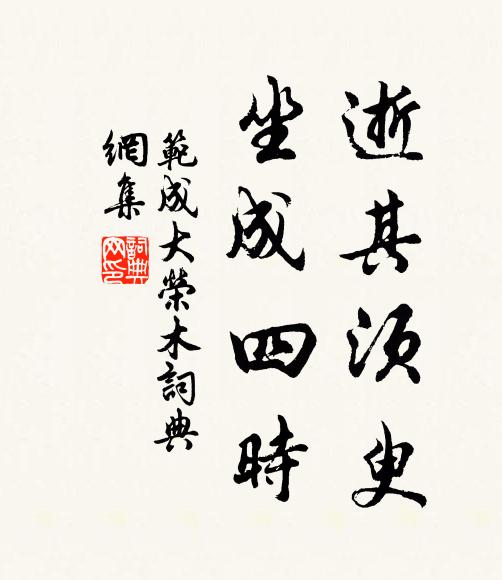 逝其須臾
坐成四時
範成大榮木詞典
網集
詞典
网印